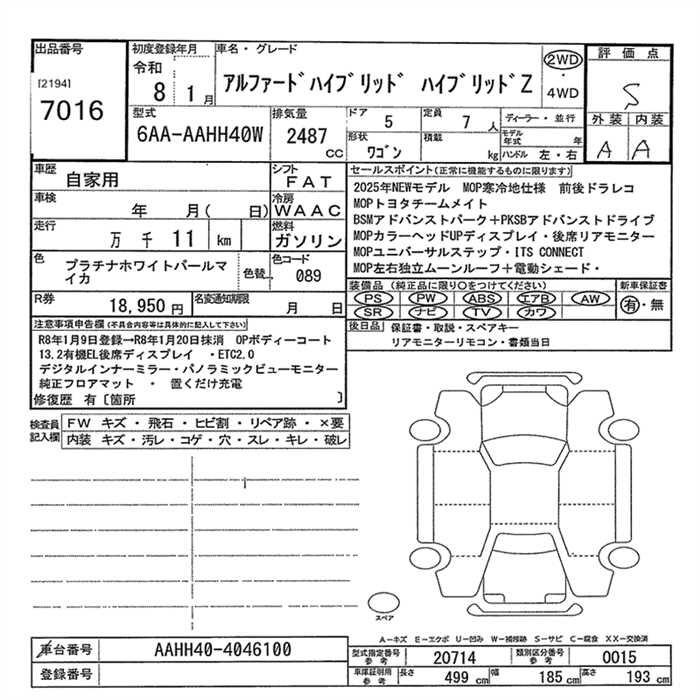 出品番号
[2194]
7016
初度登録年月
令和
8 1月
車名・グレード
アルファードハイブリッド ハイブリッドZ
2WD
・
4WD
評価点
S
外装 内装
A A
型式
6AA-AAHH40W
排気量
2487
cc
ドア
5
定員
7 人
形状
ワゴン
積載
kg
ディーラー・並行
モデル年式 年
ハンドル 左・右
車歴
自家用
シフト
FAT
車検
年 月( 日)
冷房
WAAC
走行
万 千 11 km
燃料
ガソリン
色
プラチナホワイトパールマイカ
色替
色コード
089
R券
18,950 円
名変通知期限
月 日
セールスポイント(正常に機能するものに限ります)
2025年NEWモデル MOP寒冷地仕様 前後ドラレコ
MOPトヨタチームメイト
BSMアドバンストパーク+PKSBアドバンストドライブ
MOPカラーヘッドUPディスプレイ・後席リアモニター
MOPユニバーサルステップ・ITS CONNECT
MOP左右独立ムーンルーフ+電動シェード・
装備品 (純正品に限り○をつけてください)
PS PW ABS エアB AW
SR ナビ TV カワ
新車保証書
有・無
後日品
保証書・取説・スペアキー
リアモニターリモコン・書類当日
注意事項申告欄(不具合内容等は具体的に記入して下さい)
R8年1月9日登録→R8年1月20日抹消 OPボディーコート
13.2有機EL後席ディスプレイ ・ETC2.0
デジタルインナーミラー・パノラミックビューモニター
純正フロアマット ・ 置くだけ充電
修復歴 有[箇所 ]
検査員記入欄
FW キズ・飛石・ヒビ割・リペア跡・×要
内装 キズ・汚レ・コゲ・穴・スレ・キレ・破レ
スペア
A－キズ E－エクボ U－凹み W－補修跡 S－サビ C－腐食 XX－交換済
車台番号
AAHH40-4046100
登録番号
型式指定番号
参考
20714
類別区分番号
参考
0015
車庫証明用
参考
長さ 499 cm
幅 185 cm
高さ 193 cm